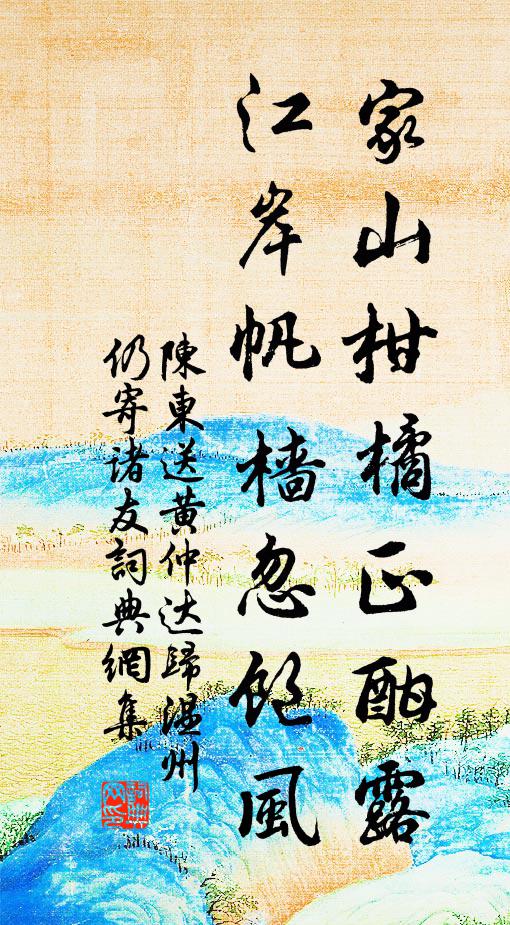 家山柑橘正酣露
江岸帆樯忽饱風
陳東送黄仲达歸温州
仍寄诸友詞典網集